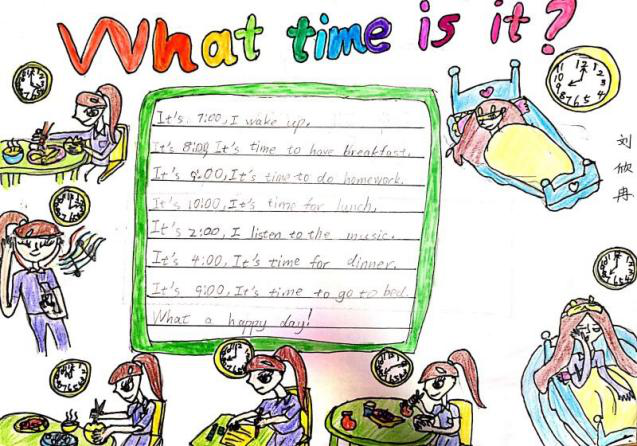 What time is it?
It's 7:00, I wake up.
It's 8:00, It's time to have breakfast.
It's 9:00, It's time to do homework.
It's 10:00, It's time for lunch.
It's 2:00, I listen to the music.
It's 4:00, It's time for dinner.
It's 9:00, It's time to go to bed.
What a happy day!
刘
欣
冉